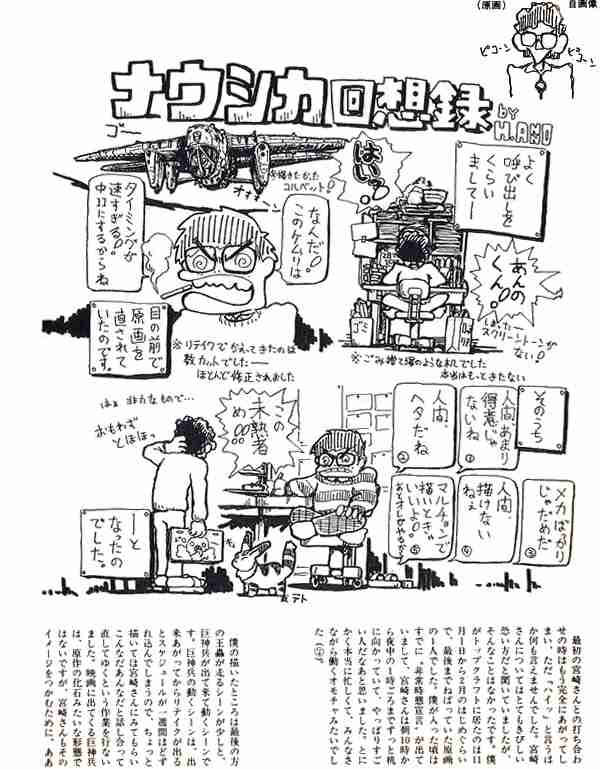 (原画)
自画像
ピコーン
ピコーン
ナウシカ回想録
by H.ANNO
ゴー
よく
呼び出しを
くらい
ましてー
はいっ!
※描きたかった
コルベット!
なんだ!
このケムリは
タイミングが
速すぎる!
中コマにするからね
あんの
くん!
しまったー
スクリーントーンが
ない!
ゴミ
目の前で
原画を
直されて
いたのです。
※リテイクでかえってきたのは
数カットでしたー
ほとんど修正されました
※ごみ捨て場のような机でした
本当はもっときたない
そのうち
人間、あまり
得意じゃ
ないね
①
人間、
ヘタだね
②
メカばっかり
じゃだめだ
③
人間、
描けない
ねェ
④
マルチョンで
描いとき。
いいよ。
⑤
この
未熟者
め!!
はぁ 非力なもので…
おもわず
とほほっ
ーと
なったの
でした。
テト
最初の宮崎さんとの打ち合わ
せの時はもう完全にあがってし
まい、ただ“ハイッ”と言うほ
か何も言えませんでした。宮崎
さんについてはとてもきびしい
恐い方だと聞いていましたが、
そんなことはなかったです。僕
がトップクラフトに居たのは11
月1日から2月のはじめぐらい
で、最後までねばっていた原画
の1人でした。僕が入った頃は
すでに“非常時態宣言”が出て
いまして、宮崎さんは朝10時か
ら夜中の1時ごろまでずっと机
に向かっていて、やっぱりすご
い人だなあと思いました。とに
かく本当に忙しくて、みんなさ
ながら働くオモチャみたいでし
た(笑)。
僕の描いたところは最後の方
の王蟲が走るシーンが少しと、
巨神兵が出て来て動くシーンで
す。巨神兵の動くシーンは、出
来あがってからリテイクが出る
とスケジュールが一週間ほどず
れ込んでしまうので、ちょっと
描いては宮崎さんにみてもらい
こんなだあんなだと話し合って
直してゆくという作業を行ない
ました。映画に出てくる巨神兵
は、原作の化石みたいな形態で
はないですが、宮崎さんもその
イメージをつかむために、ああ